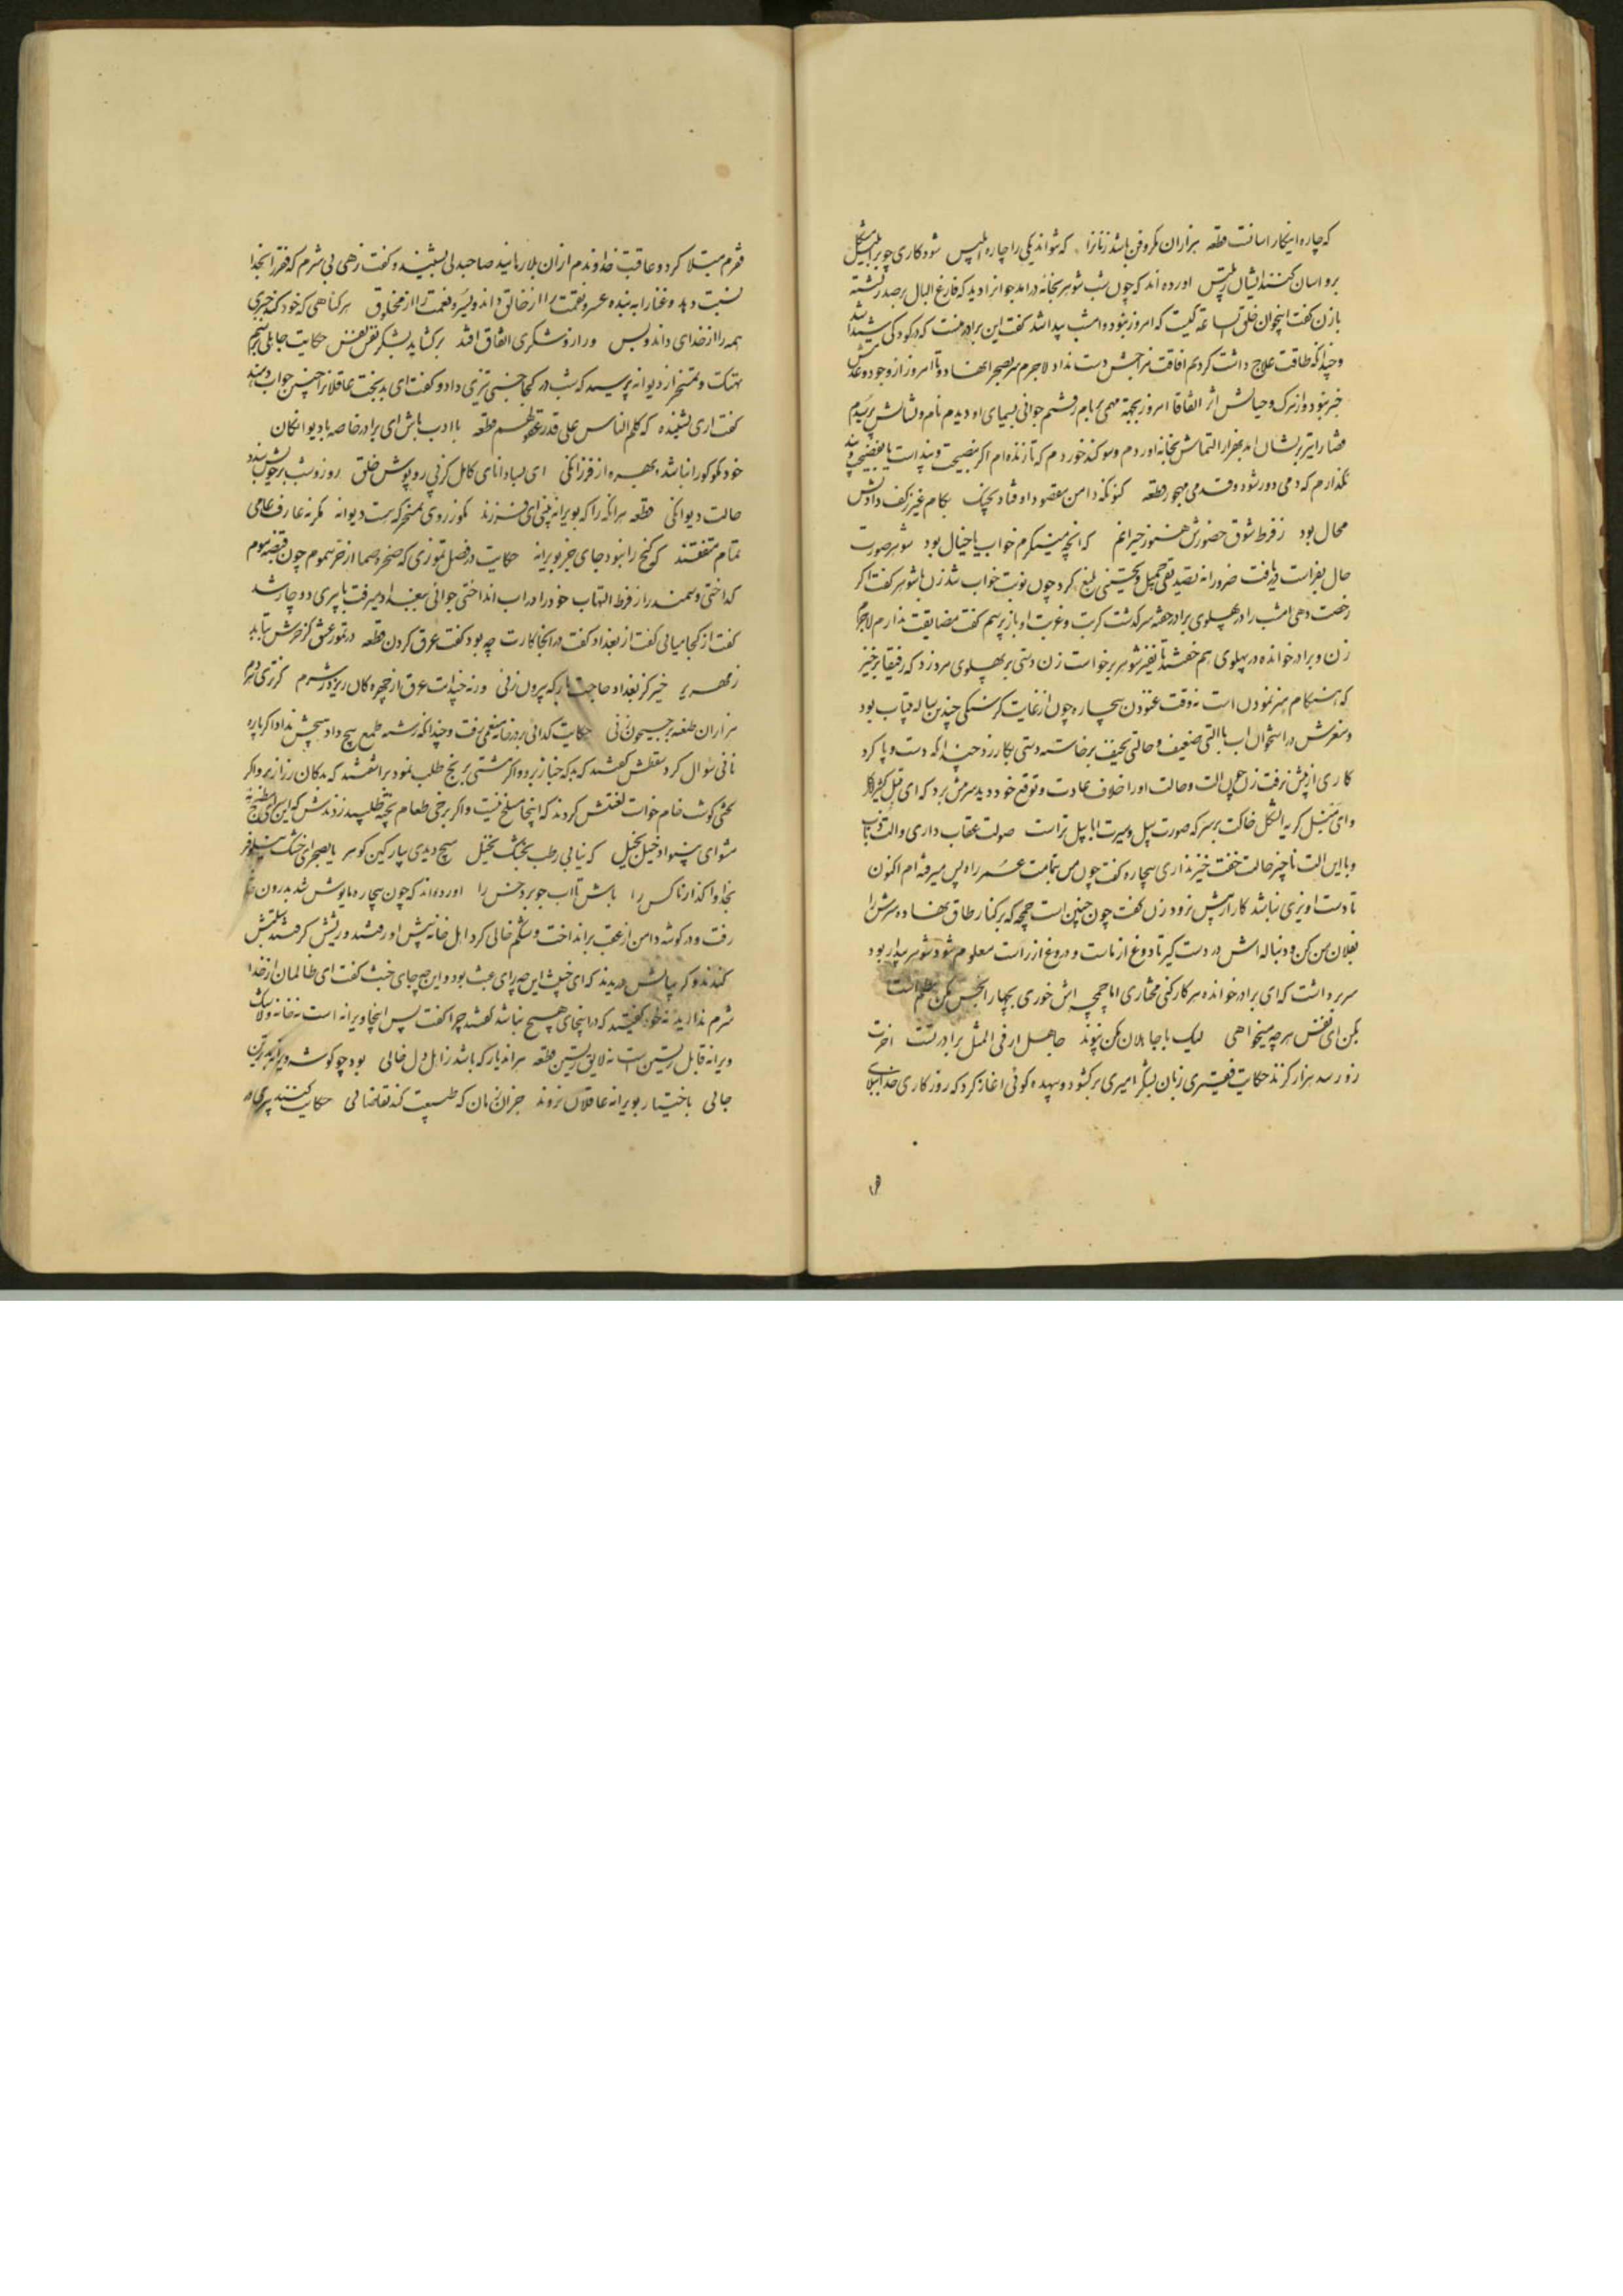 که چاره اینکار اسانست قطعه هزاران مکر و فن باشد زنانرا که نتواند یکی را چاره ابلیس شود کاری چو بر ابلیس مشکل
برو اسان کنند ایشان اورده اند که چون شب شوهر بخانه درامد جوانرا دید که فارغ البال بر صدر نشسته
با زن گفت اینجوان کیست که امروز نبود و امشب پیدا شد گفت این برادر منست که در کودکی شیدا شد
و چندانکه طاقت علاج داشت کردیم افاقت مزاجش دست نداد لاجرم سر بصحرا نهاد و تا امروز از وجود و عدمش
خبر نبود و از مرگ و حیاتش اثر اتفاقا امروز بجهة مهمی ببام رفتم جوانی بسیمای او دیدم نام و نشانش پرسیدم
بهزار التماش بخانه اوردم و سوکند خوردم که تا زنده ام اکر بنصیحت و پند است یا
نگذارم که دمی دور شود و قدمی مهجور قطعه کنونکه دامن مقصود اوفتاد بچنگ بکام غیر ز کف دادنش
محال بود ز فرط شوق حضورش هنوز حیرانم که انچه مینگرم خواب یا خیال بود شوهر صورت
حال بفراست دریافت ضرورانه تصدیقی جمیل و تحسینی بلیغ کرد چون نوبت خواب شد زن با شوهر گفت اکر
رخصت دهی امشب را در پهلوی برادر خفته سرکذشت کربت و غربت او باز پرسم کفت مضایقت ندارم لاجرم
زن و برادر خوانده در پهلوی هم خفتند تا نفیر شوهر برخواست زن دستی بر پهلوی مرد زد که رفیقا برخیز
که هنگام هنر نمودن است نه وقت غنودن بیچاره چون از غایت کرسنگی چندین ساله بیتاب بود
و مغزش در استخوان اب با التی ضعیف و حالتی نحیف برخاسته دستی بکار زد چندانکه دست و پا کرد
کاری از پیش نرفت زن چون الت و حالت او را خلاف عادت و توقع خود دید سرزنش برد که ای
خاکت بر سر که صورت پیل و سیرت ابابیل تراست صولت عقاب داری و الت ذباب
و با این الت ناچیز حالت خفت خیز نداری بیچاره گفت چون من بتمامت عمر راه پس میرفته ام اکنون
تا دست اویزی نباشد کار از پیش نرود زن کفت چون چنین است چمچه که بر کنار طاق نهاده سرش را
بفلان من کن و دنباله اش در دست گیر تا دوغ از ماست و دروغ از راست معلوم شود شوهر بیدار بود
سر برداشت که ای برادر خوانده هر کار کنی مختاری اما چمچه اش خوری بچهار را نجس مکن
بکن ای نفس هر چه میخواهی لیک با جاهلان مکن پیوند جاهل ار فی المثل برادر تست اخرت
زو رسد هزار گزند حکایت فقیری زبان بشکر امیری برکشود و بیهده گوئی اغاز کرد که روزگاری خدا ببلای
فقرم مبتلا کرد و عاقبت خداوندم از ان بلا رهانید صاحبدلی بشنید و کفت زهی بی شرم که فقر را بخدا
نسبت دهد و غنا را به بنده عسر و نقمت را از خالق داند و یسر و نعمت را از مخلوق هر کناهی که خود کند خبری
همه را از خدای داند و بس ور از و شکری اتفاق افتد برکشاید بشکر نفس نفس حکایت جاهلی برسم
تهتک و تمسخر از دیوانه پرسید که شب در کجا جنبشی تیزی داد و کفت ای بدبخت عاقلانرا چنین جواب دهند
کفت اری نشنیده که کلم الناس علی قدر عقولهم قطعه با ادب باش ای برادر خاصه با دیوانکان
خود مکو کورا نباشد بهره از فرزانکی ای بسا دانای کامل کز پی روپوش خلق روز و شب بر خویش بندد
حالت دیوانکی قطعه هر انکه را که بویرانه بینی ای فرزند مکو ز روی تمسخر که هست دیوانه مکر نه عارف و عامی
تمام متفقند که گنج را نبود جای جز بویرانه حکایت در فصل تموزی که صخره صما از حر سموم چون موم
کداختی و سمندر از فرط التهاب خود را در اب انداختی جوانی ببغداد میرفت با پیری دوچار شد
کفت از کجا میائی کفت از بغداد کفت در انجا کارت چه بود کفت عرق کردن قطعه در تموز عشق کز حرش بتابد
زمهریر خیز کز بغداد حاجت بارکه بیرون زنی ورنه چندانت عرق از چهره کان ریزد ز شرم کز تری
هزاران طعنه بر جیحون زنی حکایت کدائی بر در خانه منعمی رفت و چندانکه رشته طمع پیچ داد هیچش نداد اکر پاره
نانی سوال کرد کفتند که خباز برد و اکر مشتی برنج طلب نمود براشفتند که دکان رزاز برو اکر
لختی کوشت خام خواست لعنتش کردند که اینجا مسلخ نیست و اکر برخی طعام پخته طلبید زدندش که این
مشو ای بینوا دخیل بخیل که نیابی رطب بخشک نخیل هیچ دیدی بپارکین کوهر یا بصحرای خشک نیلوفر
بخدا واکذار ناکس را باش تا اب جو برد خس را اورده اند که چون بیچاره مایوس شد بدرون خانه
رفت و در کوشه دامن از عقب برانداخت و شکم خالی کرد اهل خانه پیش اورفتند و ریشش کرفتند و سبلتش
کندند و کریبانش دریدند که ای خبیث این چه رای عبث بود و این چه جای خبث کفت ای ظالمان از خدا
شرم ندارید نه خود کفتید که در اینجای هیچ نباشد کفتند چرا کفت پس اینجا ویرانه است نه خانه و لاشک
ویرانه قابل ریستن است نه لایق زیستن قطعه هر اندیار که باشد ز اهل دل خالی بود چو کوشه ویرانه بدترین
جائی باختیار بویرانه عاقلان نروند جز ان زمان که طبیعت کند تقاضائی حکایت کنند پیری